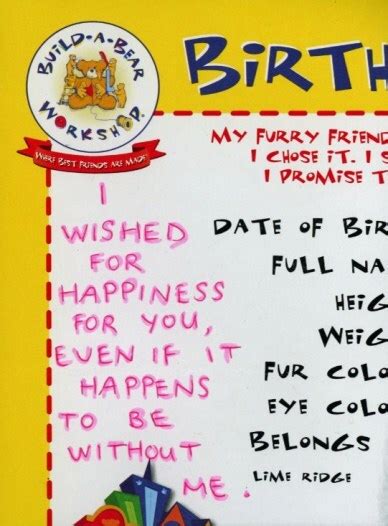 BUILD-A-BEAR
WORKSHOP
WHERE BEST FRIENDS ARE MADE
BIRTH
MY FURRY FRIEND
I CHOSE IT. I S
I PROMISE T
I
WISHED
FOR
HAPPINESS
FOR YOU,
EVEN IF IT
HAPPENS
TO BE
WITHOUT
ME.
DATE OF BIR
FULL NA
HEIG
WEIG
FUR COLO
EYE COLO
BELONGS
LIME RIDGE